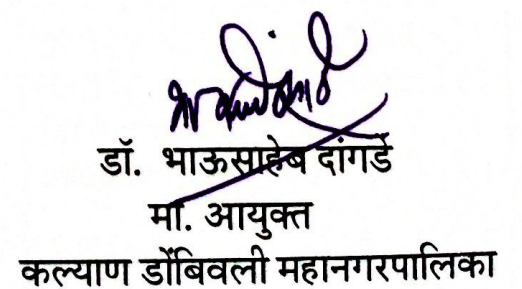 डॉ. भाऊसाहेब दांगडे
मा. आयुक्त
कल्याण डोंबिवली महानगरपालिका